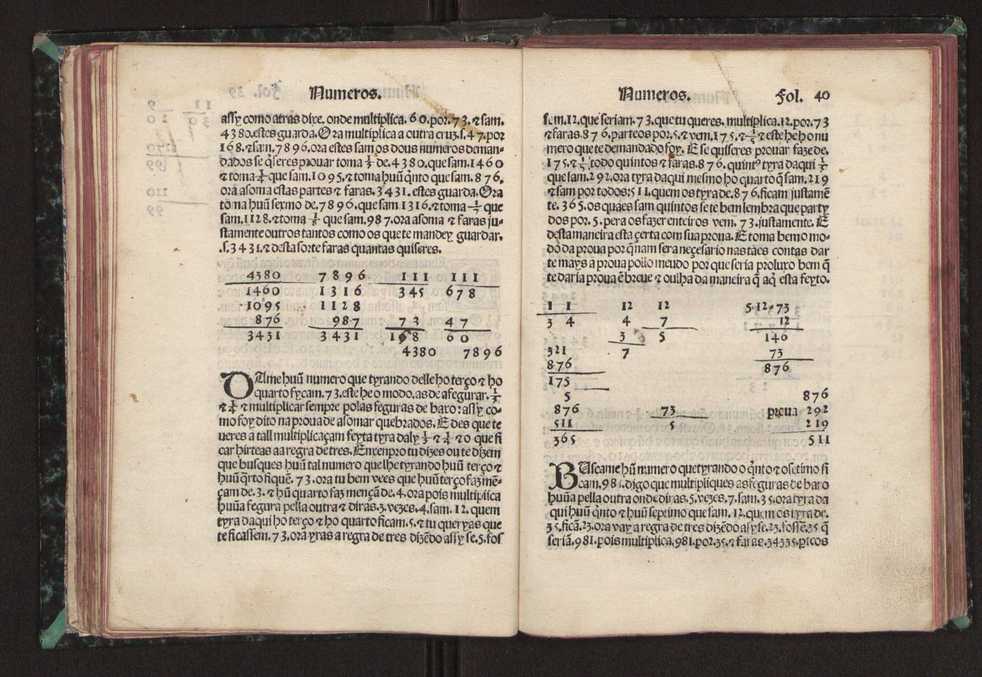 Numeros.
assy como atras dixe, onde multiplica. 60. por. 73. ⁊ sam.
4380. estes guarda. Ora multiplica a outra cruz. s. 47. por
168. ⁊ sam. 7896. ora estes sam os dous numeros deman-
dados se q̃seres prouar toma ⅓ de. 4380. que sam. 1460
⁊ toma ¼ que sam. 1095. ⁊ toma huũ q̃nto que sam. 876.
ora asoma estas partes ⁊ faras. 3431. estes guarda. Ora
tõ na huũ sexmo de. 7896. que sam. 1316. ⁊ toma 1/7 que
sam. 1128. ⁊ toma ⅛ que sam. 987. ora asoma ⁊ faras ju-
stamente outros tantos como os que te mandey guardar.
.s. 3431. ⁊ desta sorte faras quantas quiseres.
4380 7896 111 111
1460 1316 345 678
1095 1128
876 987 73 47
3431 3431 168 60
4380 7896
DAlme huũ numero que tyrando delle ho terço ⁊ ho
quarto fycam. 73. este he o modo. as de afegurar. ⅓
⁊ ¼ ⁊ multiplicar sempre polas feguras de baxo: assy co-
mo foy dito na proua de asomar quebrados. E des que te
ueres a tall multiplicaçam feyta tyra daly ⅓ ⁊ ¼ ⁊ o que fi
car hirteas aa regra de tres. Enxenpro tu dizes ou te dizem
que busques huũ tal numero que lhe tyrando huũ terço ⁊
huũ q̃rto fiquẽ. 73. ora tu bem vees que huũ terço faz mẽ-
çam de. 3. ⁊ hũ quarto faz mençã de. 4. ora pois multiplica
huũa fegura pella outra ⁊ diras. 3. vezes. 4. sam. 12. quem
tyra daqui ho terço ⁊ ho quarto ficam. 5. ⁊ tu queryas que
te ficassem. 73. ora yras a regra de tres dizẽdo assy se. 5. fos
Numeros. Fol. 40
sem. 12. que seriam. 73. que tu queres. multiplica. 12. por. 73
⁊ faras. 876. parteos por. 5. ⁊ vem. 175. ⁊ ⅕ ⁊ este he ho nu
mero que te demandado foy. E se quiseres prouar faze de.
175. ⁊ ⅕ todo quintos ⁊ faras. 876. quintꝰ tyra daqui ⅓
que sam. 292. ora tyra daqui mesmo ho quarto q̃ sam. 219
⁊ sam por todos; 511. quem os tyra de. 876. ficam justamẽ
te. 365. os quaes sam quintos se te bem lembra que party
dos por. 5. pera os fazer enteiros vem. 73. justamente. E
desta maneira esta çerta com sua proua. E toma bem o mo-
dõ da proua por q̃ nam sera neçesario nas taes contas dar
te mays a proua pollo meudo por que seria proluxo bem q̃
te daria proua ẽ breue ⁊ oulha da maneira q̃ aq̃ esta feyto.
1 1 12 12 5·12·73
3 4 4 7 12
3 5 146
321 7 73
876 876
175
5 876
876 73 proua 292
511 5 219
365 511
BUscame hũ numero que tyrando o q̃nto ⁊ o setimo fi
cam. 981. digo que multipliques as feguras de baxo
huũa pella outra onde diras. 5. vezes. 7. sam. 35. ora tyra da
qui huũ q̃nto ⁊ huũ septimo que sam. 12. quem os tyra de.
35. ficã. 23. ora vay a regra de tres dizẽdo assy se. 23. fossẽ. 35 q̃
seriã. 981. pois multiplica. 981. por. 35. ⁊ faras. 34335. p̃teos